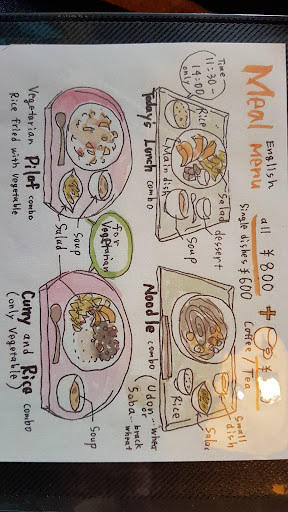 English
Meal Menu
all ¥800
Single dishes ¥600
+
¥
Coffee Tea
Time
11:30-
14:00
only
Rice
Main dish
Salad
dessert
Soup
Today's Lunch combo
Small
dish
Salad
Rice
Noodle combo (Udon...wheat
or
Soba...brack
wheat
for
Vegetarian
Soup
Salad
Vegetarian Pilaf combo
Rice fried with vegetable
Soup
Curry and Rice combo
(only Vegetable)